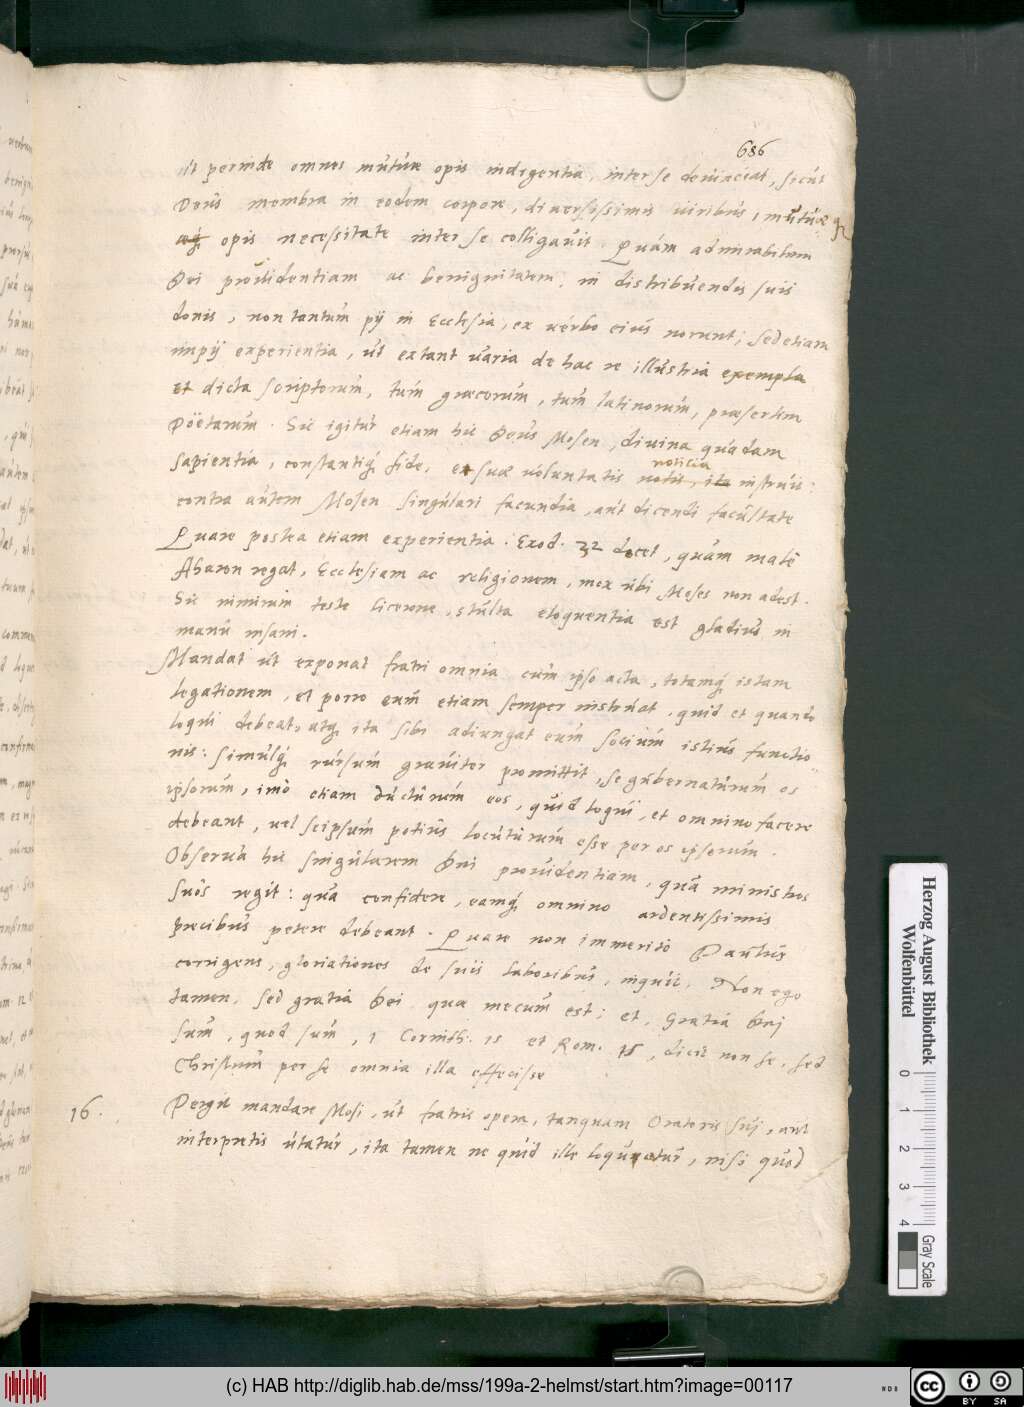 686
ut perinde omnes mutuae opis indigentia, inter se deuinciat, sicut
Deus membra in eodem corpore, diuersissimis uiribus, mutuae
opis necessitate inter se colligauit. Quàm admirabilem
Dei prouidentiam ac benignitatem, in distribuendis suis
donis, non tantum pij in Ecclesia, ex uerbo eius norunt; sed etiam
impij experientia, ut extant uaria de hac re illustria exempla
et dicta scriptorum, tum graecorum, tum latinorum, praesertim
Poëtarum. Sic igitur etiam hic Deus Mosen, diuina quadam
sapientia, constantiq́; fide, et suae uoluntatis noticia instruit:
contra autem Mosen singulari facundia, aut dicendi facultate
Quare postea etiam experientia. Exod. 32 docet, quàm malè
Aharon regat, Ecclesiam ac religionem, mox ubi Moses non adest.
Sic nimirum teste Cicerone, stulta eloquentia est gladius in
manu insani.
Mandat ut exponat fratri omnia cum ipso acta, totamq́; istam
legationem, et porro eum etiam semper instruat, quid et quando
loqui debeat, atq́; ita sibi adiungat eum socium istius functio
nis: simulq́; rursum grauiter promittit, se gubernaturum os
ipsorum, imò etiam ducturum eos, quid loqui, et omnino facere
debeant, uel seipsum potius locuturum esse per os ipsorum.
Obserua hic singularem Dni prouidentiam, qua ministros
suos regit: qua confidere, eamq́; omnino ardentissimis
precibus petere debeant. Quare non immeritò Paulus
corrigens, gloriationes de suis laboribus, inquit, Non ego
tamen, sed gratia Dei quae mecum est; et, Gratia Dei
sum, quod sum, 1 Corinth. 15 et Rom. 15, dicit non se, sed
Christum per se omnia illa effecisse
16. Pergit mandare Mosi, ut fratris opera, tanquam Oratoris sui, aut
interpretis utatur, ita tamen ne quid ille loquatur, nisi quod
Herzog August Bibliothek
Wolfenbüttel
0 1 2 3 4
Gray Scale
(c) HAB http://diglib.hab.de/mss/199a-2-helmst/start.htm?image=00117
cc BY SA